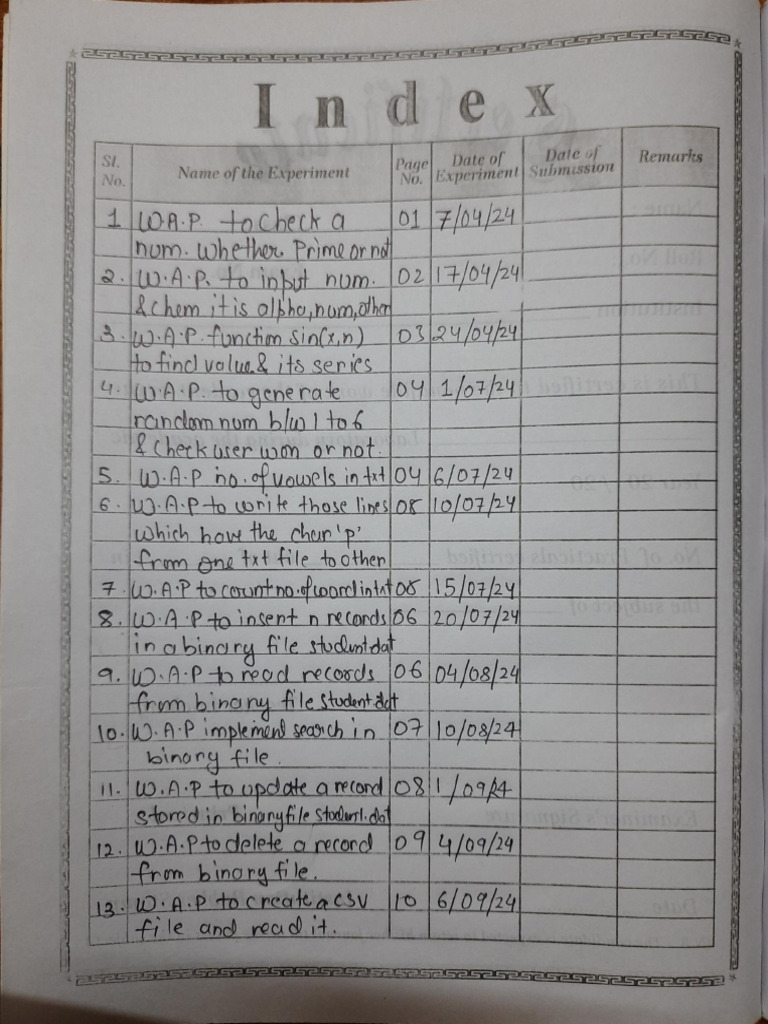 Index
Sl. No. Name of the Experiment Page No. Date of Experiment Date of Submission Remarks
1 W.A.P. to Check a 01 7/04/24
num. whether Prime or not
2. W.A.P. to input num. 02 17/04/24
& chem it is alpha, num, other
3. W.A.P. function sin(x,n) 03 24/04/24
to find value & its series
4. W.A.P. to generate 04 1/07/24
random num b/w 1 to 6
& check user won or not.
5. W.A.P no. of vowels in txt 04 6/07/24
6. W.A.P to write those lines 05 10/07/24
which have the char 'p'
from one txt file to other
7. W.A.P to count no. of woord in txt 05 15/07/24
8. W.A.P to insent n records 06 20/07/24
in a binary file student.dat
9. W.A.P to read records 06 04/08/24
from binary file student.dat
10. W.A.P implement search in 07 10/08/24
binary file.
11. W.A.P to update a record 08 1/09/24
stored in binary file student.dat
12. W.A.P to delete a record 09 4/09/24
from binary file.
13. W.A.P to create a csv 10 6/09/24
file and read it.